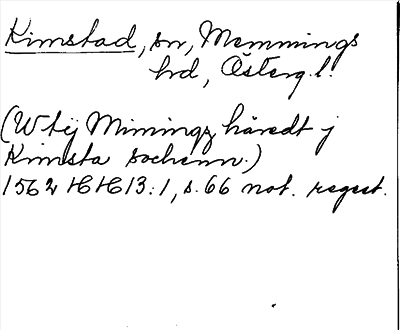 Kimstad, sn, Memmings
hrd, Österg. l.
(W tij Mimingz häredt j
Kimsta sochenn.)
1562 HH 13:1, s. 66 not. regest.